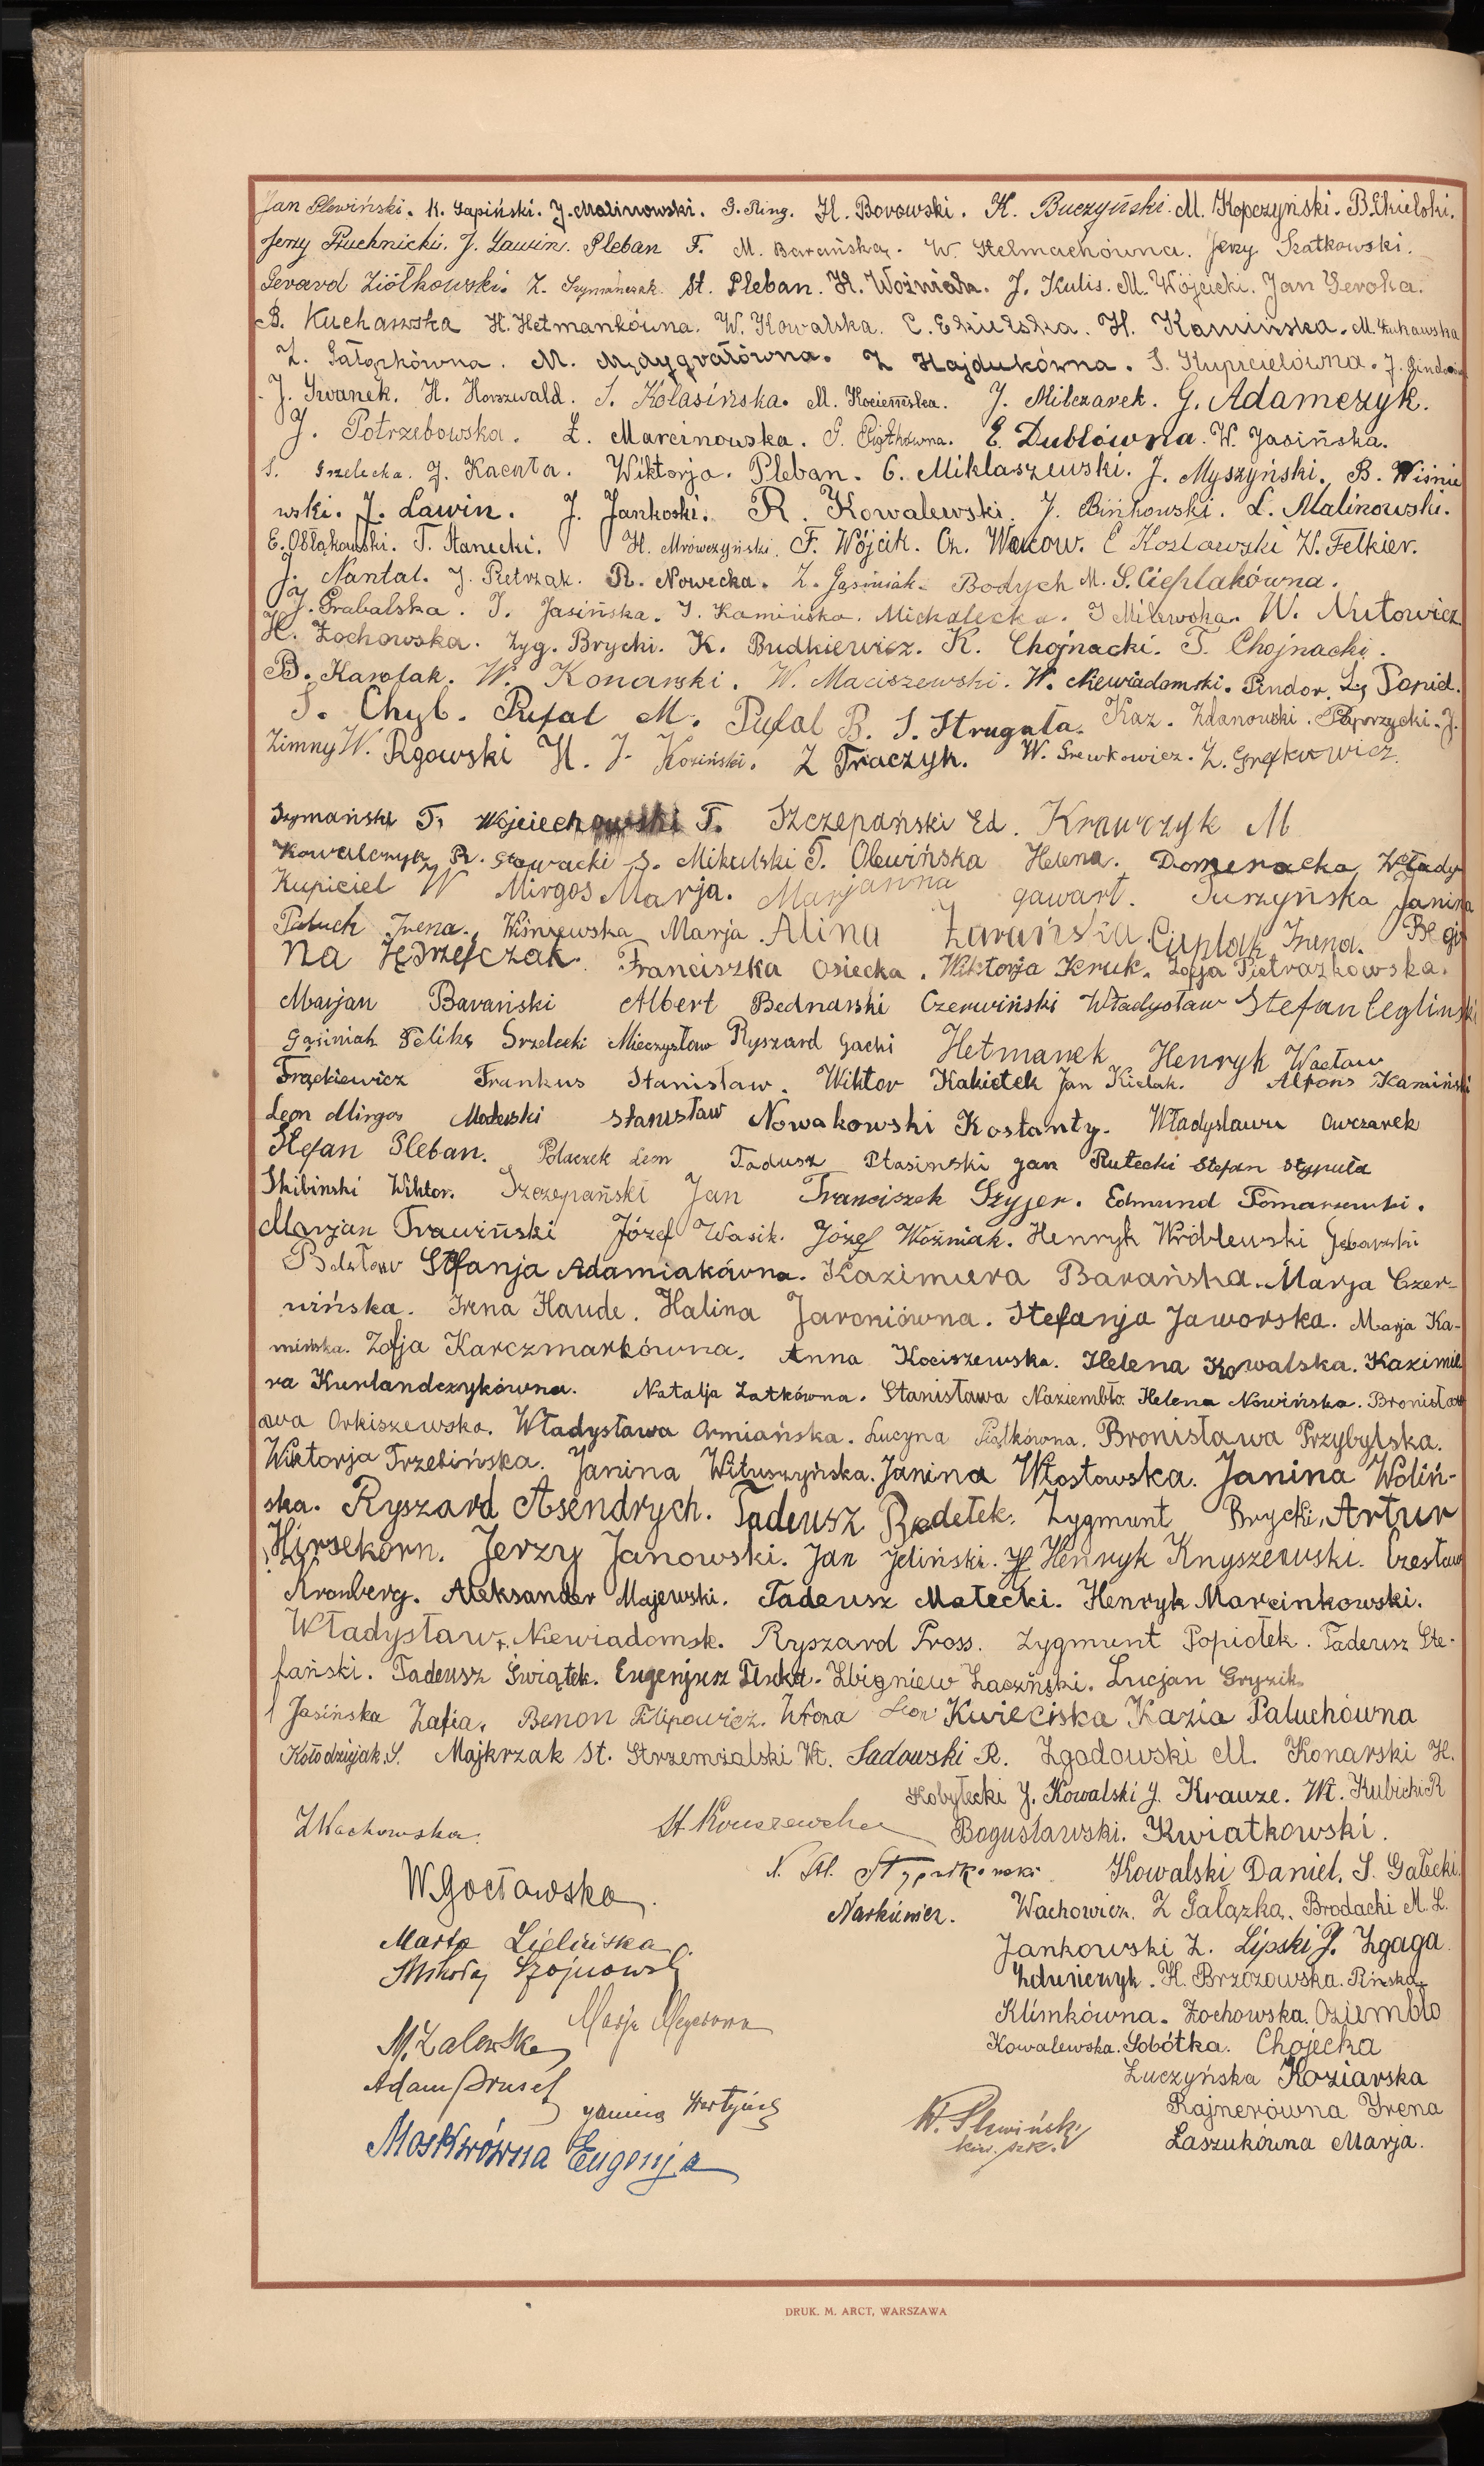 Jan Plewiński. K. Łapiński. J. Malinowski. G. Ring. H. Borowski. K. Buczyński. M. Kopczyński. B. Ekielski.
Jerzy Puchnicki. J. Lawin. Pleban F. M. Barańska. W. Stelmachówna. Jerzy Szatkowski.
Gerard Ziółkowski. Z. Szymańczak. St. Pleban. H. Woźniak. J. Kulis. M. Wójcicki. Jan Geroka.
B. Kucharska H. Hetmankówna. W. Kowalska. C. Ekielska. H. Kamińska. M. Żuhawska
Z. Gałązkówna. M. Mądygrałówna. Z Hajdukówna. S. Kupicielówna. J.
J. Iwanek. H. Horszwald. S. Kolasińska. M. Kociemska. J. Milczarek. G. Adamczyk.
J. Potrzebowska. Ł. Marcinowska. G. Piątkówna. E. Dublówna. W. Jasińska.
S. Grzelecka. J. Kacała. Wiktorja. Pleban. C. Miklaszewski. J. Myszyński. B. Wiśnie
wski. J. Lawin. J. Jankoski. R. Kowalewski. J. Bińkowski. L. Malinowski.
E. Obłąkowski. T. Stanecki. H. Mrówczyński. F. Wójcik. Ch. Wacow. E Kosławski W. Felkier.
J. Nantal. J. Pietrzak. R. Nowicka. Z. Gąsiniak. Bodych M. S. Cieplakówna.
J. Grabalska. J. Jasińska. I. Kamińska. Michalecka. J Milewska. W. Nutowicz.
H. Żochowska. Zyg. Brycki. K. Budkiewicz. K. Chojnacki. T. Chojnacki.
B. Karolak. W. Konarski. W. Maciszewski. W. Niewiadomski. Pindor. Lg Popiel.
S. Chyl. Pufal M. Pufal B. S. Strugała. Kaz. Zdanowski. Paprzycki. J.
Zimny W. Rgowski H. J. Kosiński. Z Traczyk. W. Grewkowicz. Z. Grefkowicz.
Szymański T. Wojciechowski T. Szczepański Ed. Krawczyk M
Kowalczyk R. Słowacki S. Mikulski T. Olewińska Helena. Domeracka Włady
Kupiciel W Mirgos Marja. Marjanna Gawart. Turzyńska Janina
Paluch Irena. Wiśniewska Marja. Alina Żarańska. Cieplak Irena. Regi
na Jędrzejczak. Franciszka Osiecka. Wiktorja Kruk. Zofja Pietrazkowska.
Marjan Barański Albert Bednarski Czerwiński Władysław Stefan Cegliński
Gąsiniak Feliks Grzelecki Mieczysław Ryszard Gacki Hetmanek Henryk Wacław
Frąckiewicz Frankus Stanisław. Wiktor Kakietek Jan Kielak. Alfons Kamiński
Leon Mirgos Modewski Stanisław Nowakowski Kostanty. Władysławu Owczarek
Stefan Pleban. Polaczek Leon Tadusz Ptasinski Jan Rutecki Stefan Stypuła
Skibinski Wiktor. Szczepański Jan Franciszek Szyjer. Edmund Tomaszewski.
Marjan Trawiński Józef Wasik. Józef Woźniak. Henryk Wróblewski
Bolesław Stefanja Adamiakówna. Kazimiera Barańska. Marja Czer-
wińska. Irena Haude. Halina Jaroniówna. Stefanja Jaworska. Marja Ka-
mińska. Zofja Karczmarkówna. Anna Kociszewska. Helena Kowalska. Kazimie
ra Kurlandczykówna. Natalja Łatkówna. Stanisława Naziembło. Helena Nowińska. Bronisław
awa Orkiszewska. Władysława Ormiańska. Lucyna Piątkówna. Bronisława Przybylska.
Wiktorja Trzebińska. Janina Wituszyńska. Janina Włostowska. Janina Woliń-
ska. Ryszard Asendrych. Tadeusz Redełek. Zygmunt Brycki. Artur
Hirsekorn. Jerzy Janowski. Jan Jeliński. Henryk Knyszewski. Czesław
Kronberg. Aleksander Majewski. Tadeusz Małecki. Henryk Marcinkowski.
Władysław. Niewiadomsk. Ryszard Pross. Zygmunt Popiołek. Tadeusz Ste-
fański. Tadeusz Świątek. Eugenjusz Tłuka. Zbigniew Łaczyński. Lucjan Gryzik
Jasińska Zofia. Benon Filipowicz. Wrona Leon Kwiecińska Kazia Paluchówna
Kołodziejak S. Majkrzak St. Strzemialski Wł. Sadowski R. Zgodowski M. Konarski H.
Kobyłecki J. Kowalski J. Krauze. Wł. Kubicki R
Z Wachowska. St Kruszewska Bogusławski. Kwiatkowski.
W. Gocławska. N. St. Stypułkowski Kowalski Daniel. S. Gałecki.
Narkiewicz. Wachowicz. Z Gałązka. Brodacki M. L.
Marta Zielińska. Jankowski Z. Lipski J. Zgaga
Mikołaj Szojnowski Zduńczyk. H. Brzozowska. Pińska
Marja Meyerowa Klimkówna. Żochowska. Oziembło
M. Zalewska Kowalewska. Sobótka. Chojecka
Adam Prusel Łuczyńska Koziarska
Janina Rajnerówna Irena
Moskwówna Eugenja W. Plewiński Łaszukówna Marja.
kier. szk.
DRUK. M. ARCT, WARSZAWA